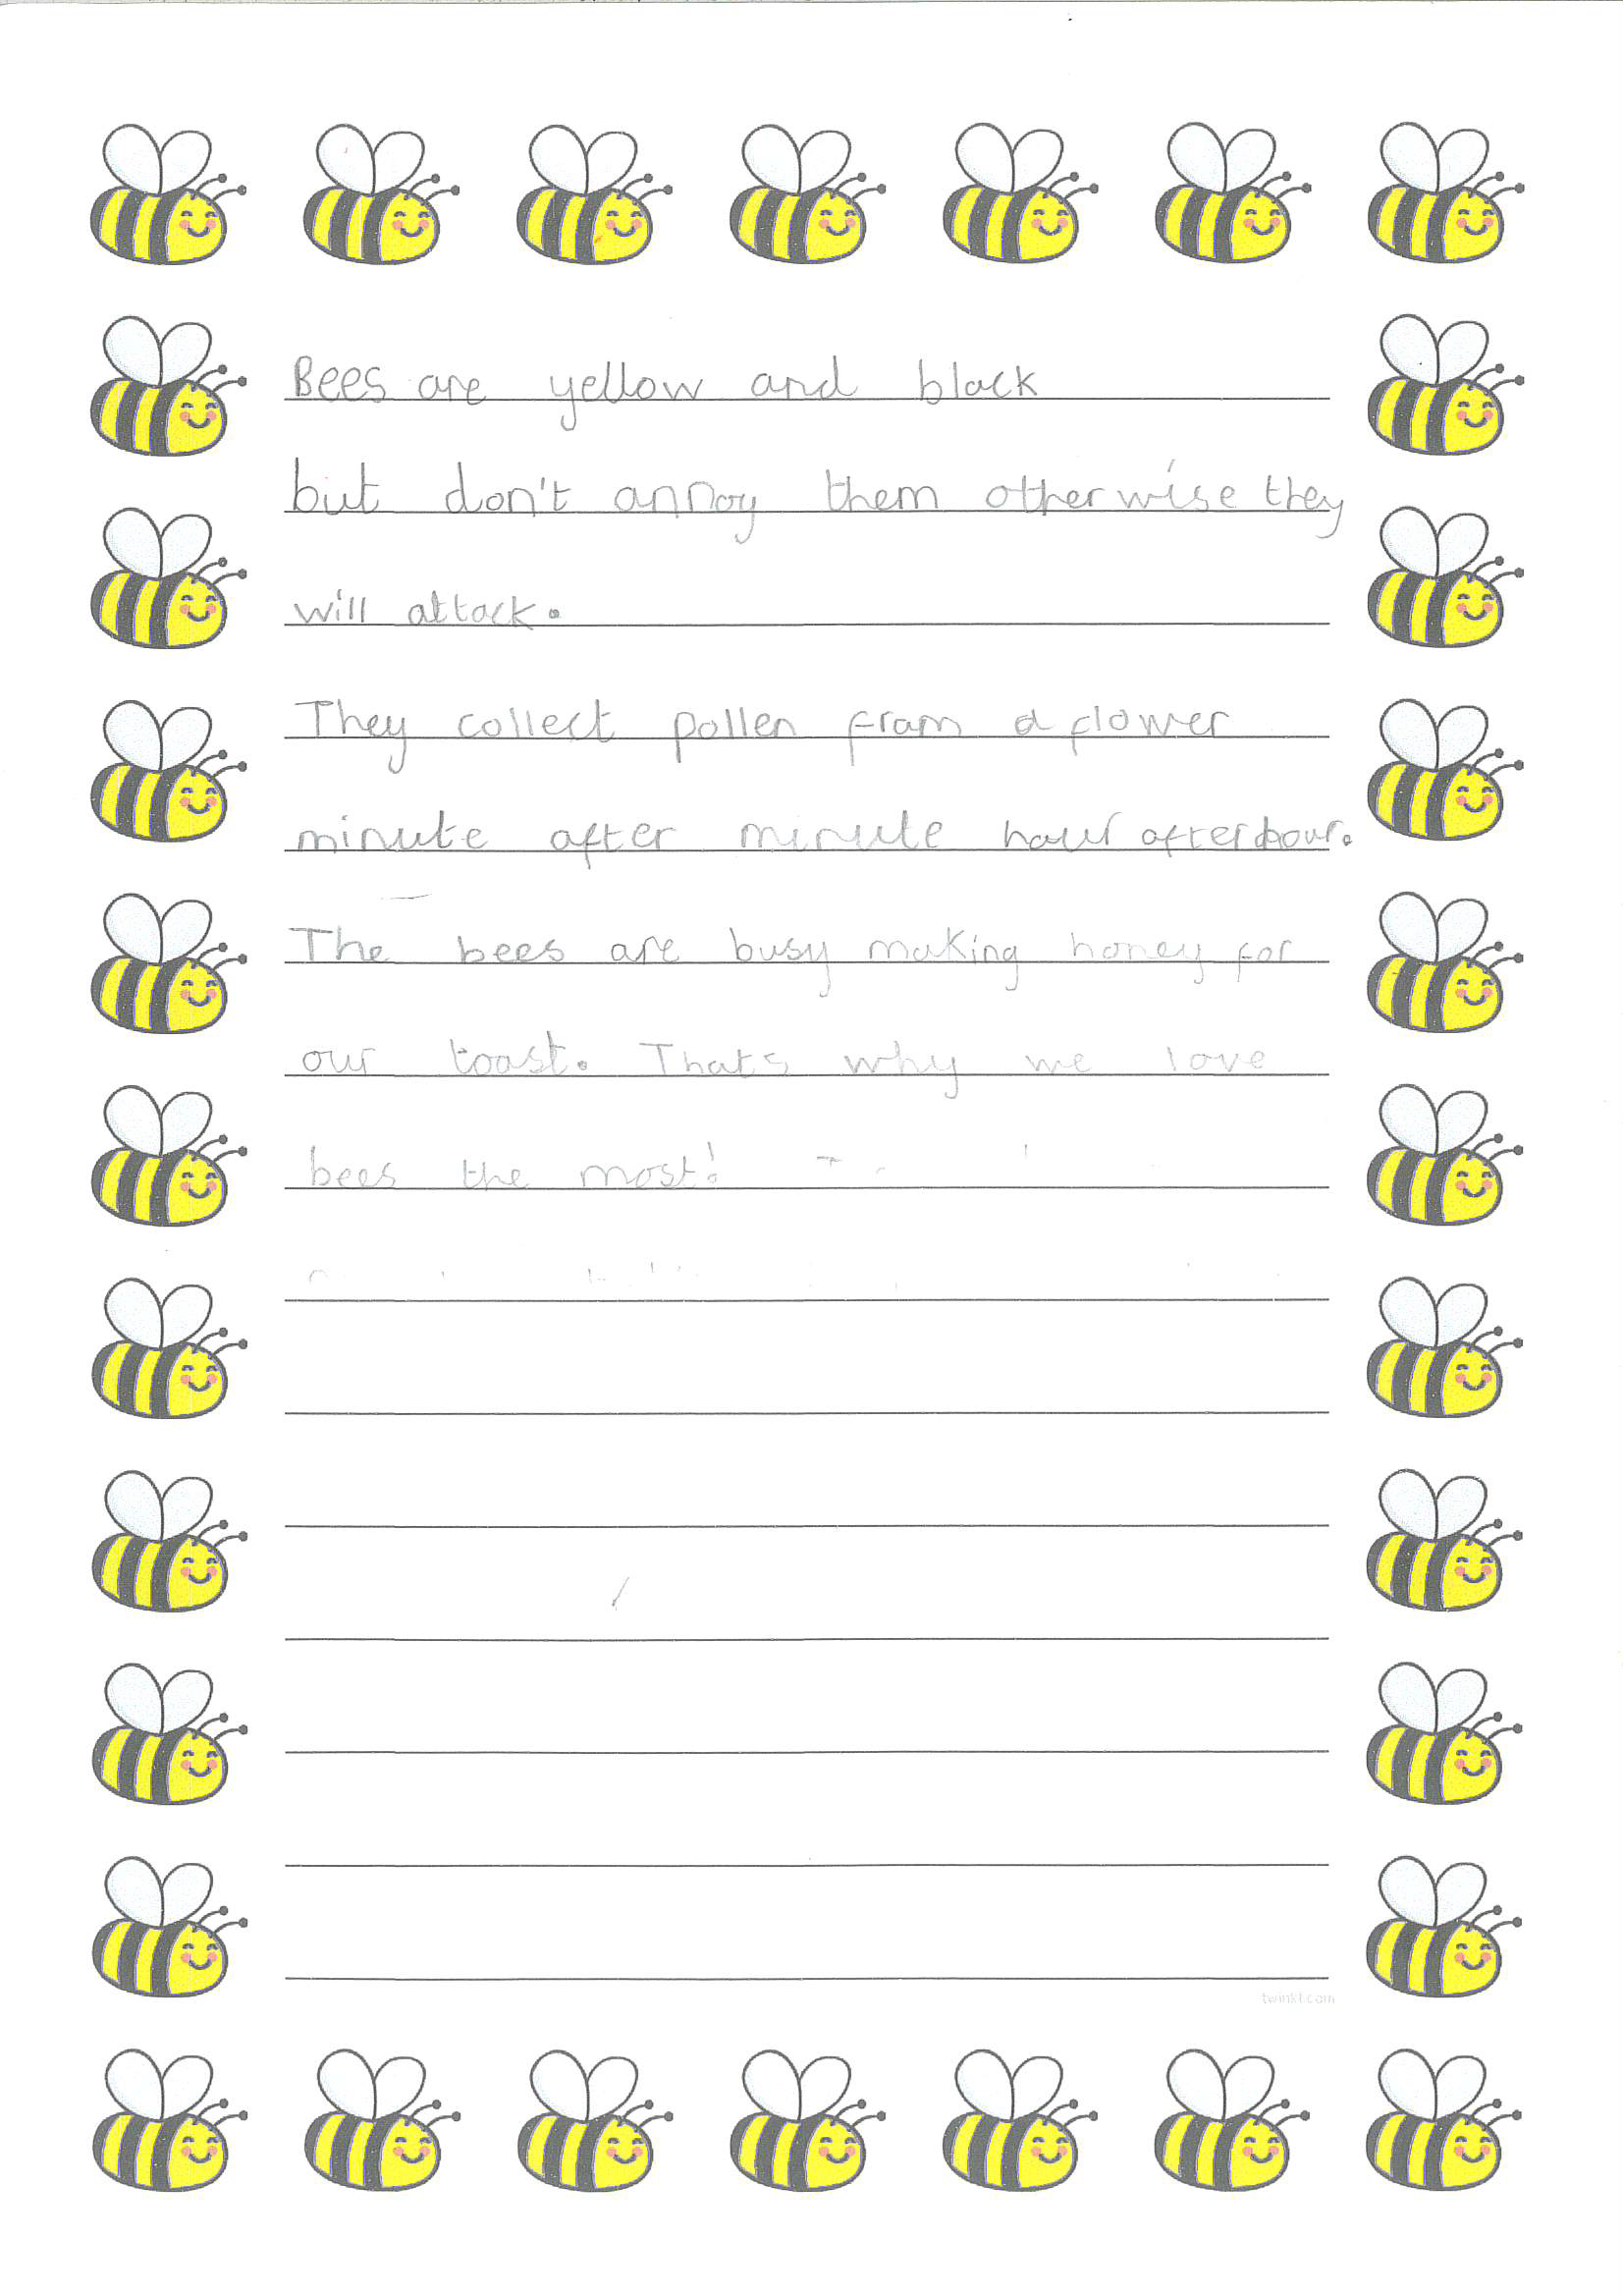 Bees are yellow and black
but don't annoy them otherwise they
will attack.
They collect pollen from a flower
minute after minute hour after hour.
The bees are busy making honey for
our toast. Thats why we love
bees the most!
twinkl.com